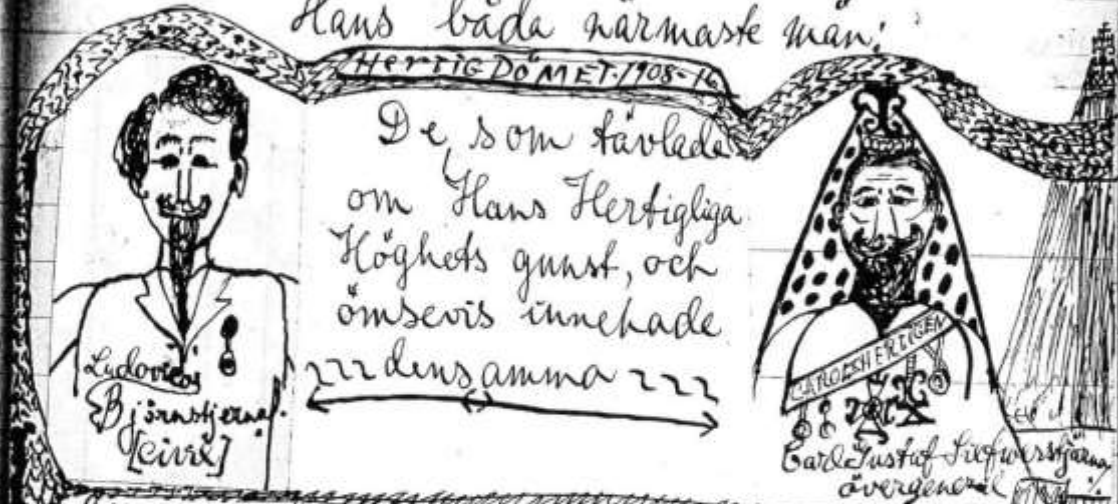 Hans båda närmaste män:
HERTIGDÖMET. 1908-16
De, som tävlade
om Hans Hertigliga
Höghets gunst, och
ömsevis innehade
densamma
Ludovicos
Björnstjerna.
[civil]
CAROLSHERTIGEN
Carl Gustuf Silfwerstjärna
övergeneral